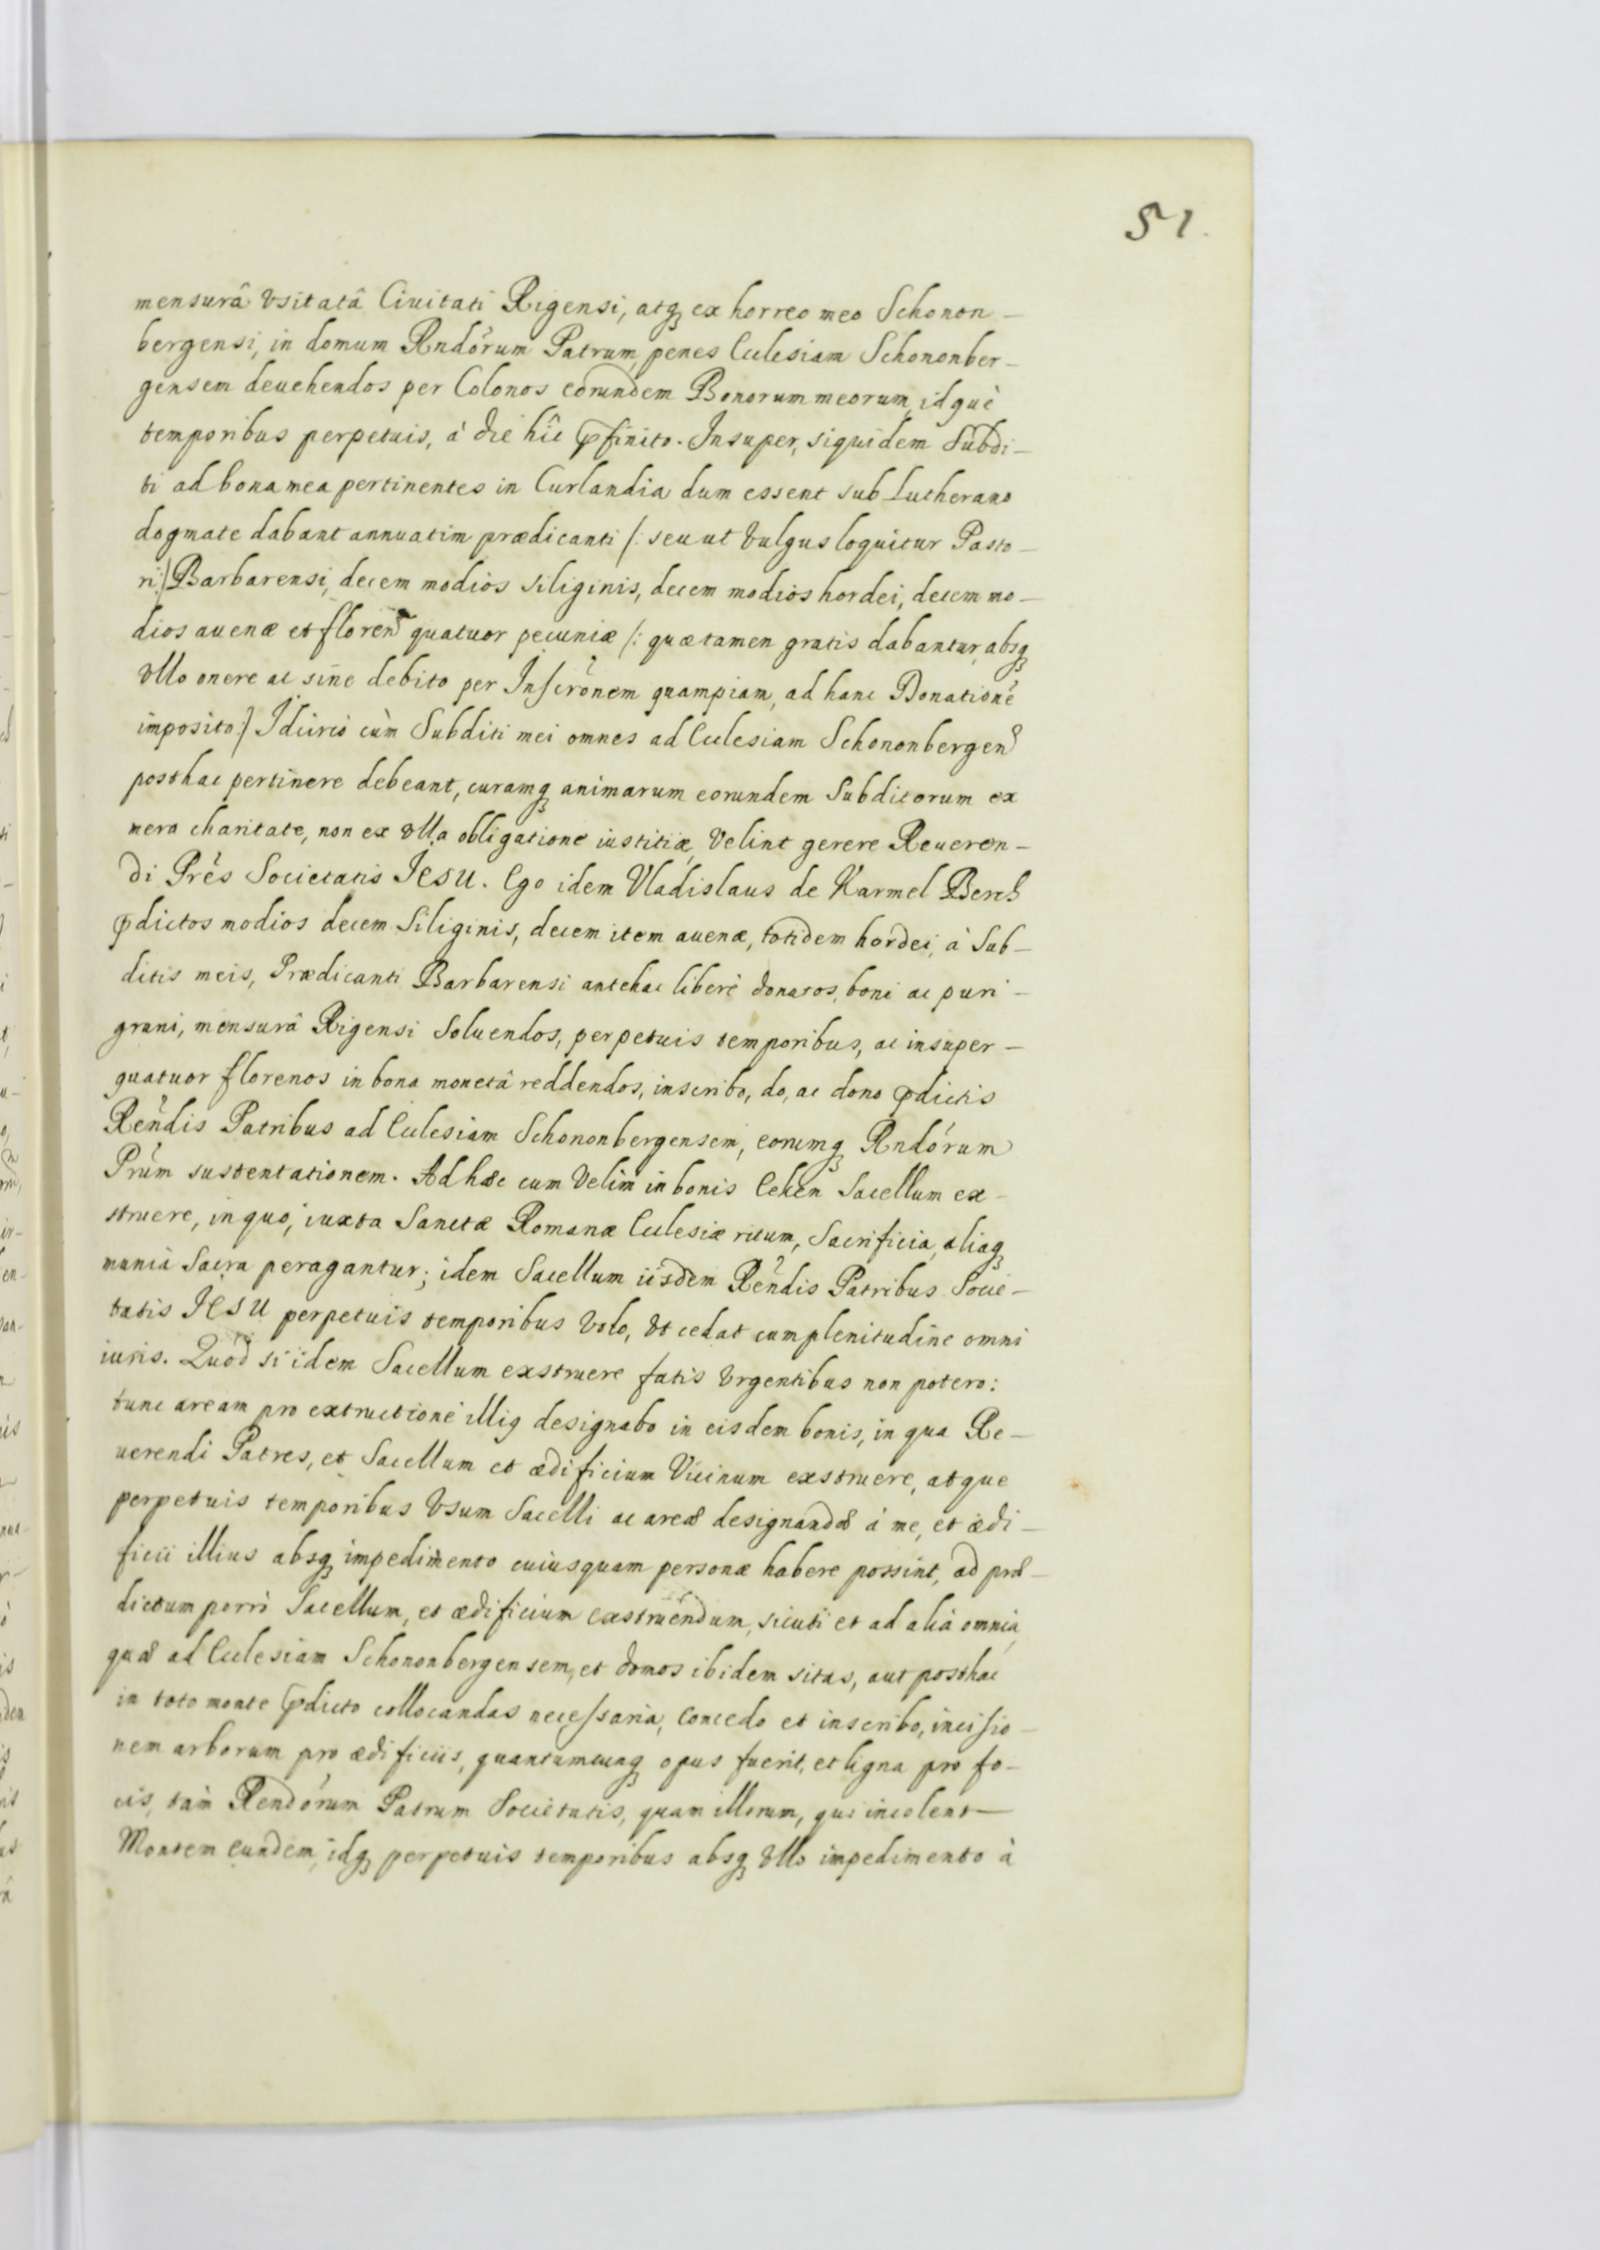 51.
mensurâ vsitatâ Ciuitati Rigensi, atq₃ ex horreo meo Schonon-
bergensi, in domum Rndórum Patrum, penes Ecclesiam Schononber-
gensem deuehendos per Colonos eorundem Bonorum meorum, idquè
temporibus perpetuis, à die hîc p̄finito. Insuper, siquidem Subdi-
ti ad bona mea pertinentes in Curlandia dum essent sub Lutherano
dogmate dabant annuatim prædicanti /: seu ut vulgus loquitur Pasto-
ri:/ Barbarensi, decem modios siliginis, decem modios hordei, decem mo-
dios auenæ et floren̄ quatuor pecuniæ /: quæ tamen gratis dabantur, absq₃
vllo onere ac sine debito per Inscrõnem quampiam, ad hanc Donationẽ
imposito:/ Idcircò cùm Subditi mei omnes ad Ecclesiam Schononbergen̄
posthac pertinere debeant, curamq₃ animarum eorundem Subditorum ex
mera charitate, non ex vlla obligatione iustitiæ, velint gerere Reueren-
di Prẽs Societatis IESU. Ego idem Vladislaus de Karmel Berch
p̄dictos modios decem Siliginis, decem item auenæ, totidem hordei, à Sub-
ditis meis, Prædicanti Barbarensi antehac liberè donatos, boni ac puri
grani, mensurâ Rigensi Soluendos, perpetuis temporibus, ac insuper-
quatuor florenos in bona monetâ reddendos, inscribo, do, ac dono p̄dictis
Rẽndis Patribus ad Ecclesiam Schononbergensem, eorumq₃ Rndórum
Prũm sustentationem. Ad hæc cum velim in bonis Ceken Sacellum ex-
struere, in quo, iuxta Sanctæ Romanæ Ecclesiæ ritum, Sacrificia, aliaq₃
munia Sacra peragantur; idem Sacellum iisdem Rẽndis Patribus Socie-
tatis IESU perpetuis temporibus volo, vt cedat cum plenitudine omni
iuris. Quod si idem Sacellum exstruere fatis vrgentibus non potero:
tunc aream pro extructione illiq designabo in eisdem bonis, in qua Re-
uerendi Patres, et Sacellum et ædificium Vicinum exstruere, atque
perpetuis temporibus Vsum Sacelli ac areæ designandæ à me, et ædi-
ficii illius absq₃ impedimento cuiusquam personæ habere possint, ad præ-
dictum porrò Sacellum, et ædificium exstruendum, sicuti et ad alia omnia,
quæ ad Ecclesiam Schononbergensem, et domos ibidem sitas, aut posthac
in toto monte p̄dicto collocandas necessaria, concedo et inscribo, incisio-
nem arborum pro ædificiis, quantumcunq₃ opus fuerit, et ligna pro fo-
cis, tàm Rendórum Patrum Societatis, quam illorum, qui incolent
Montem eundem, idq₃ perpetuis temporibus absq₃ vllo impedimento à